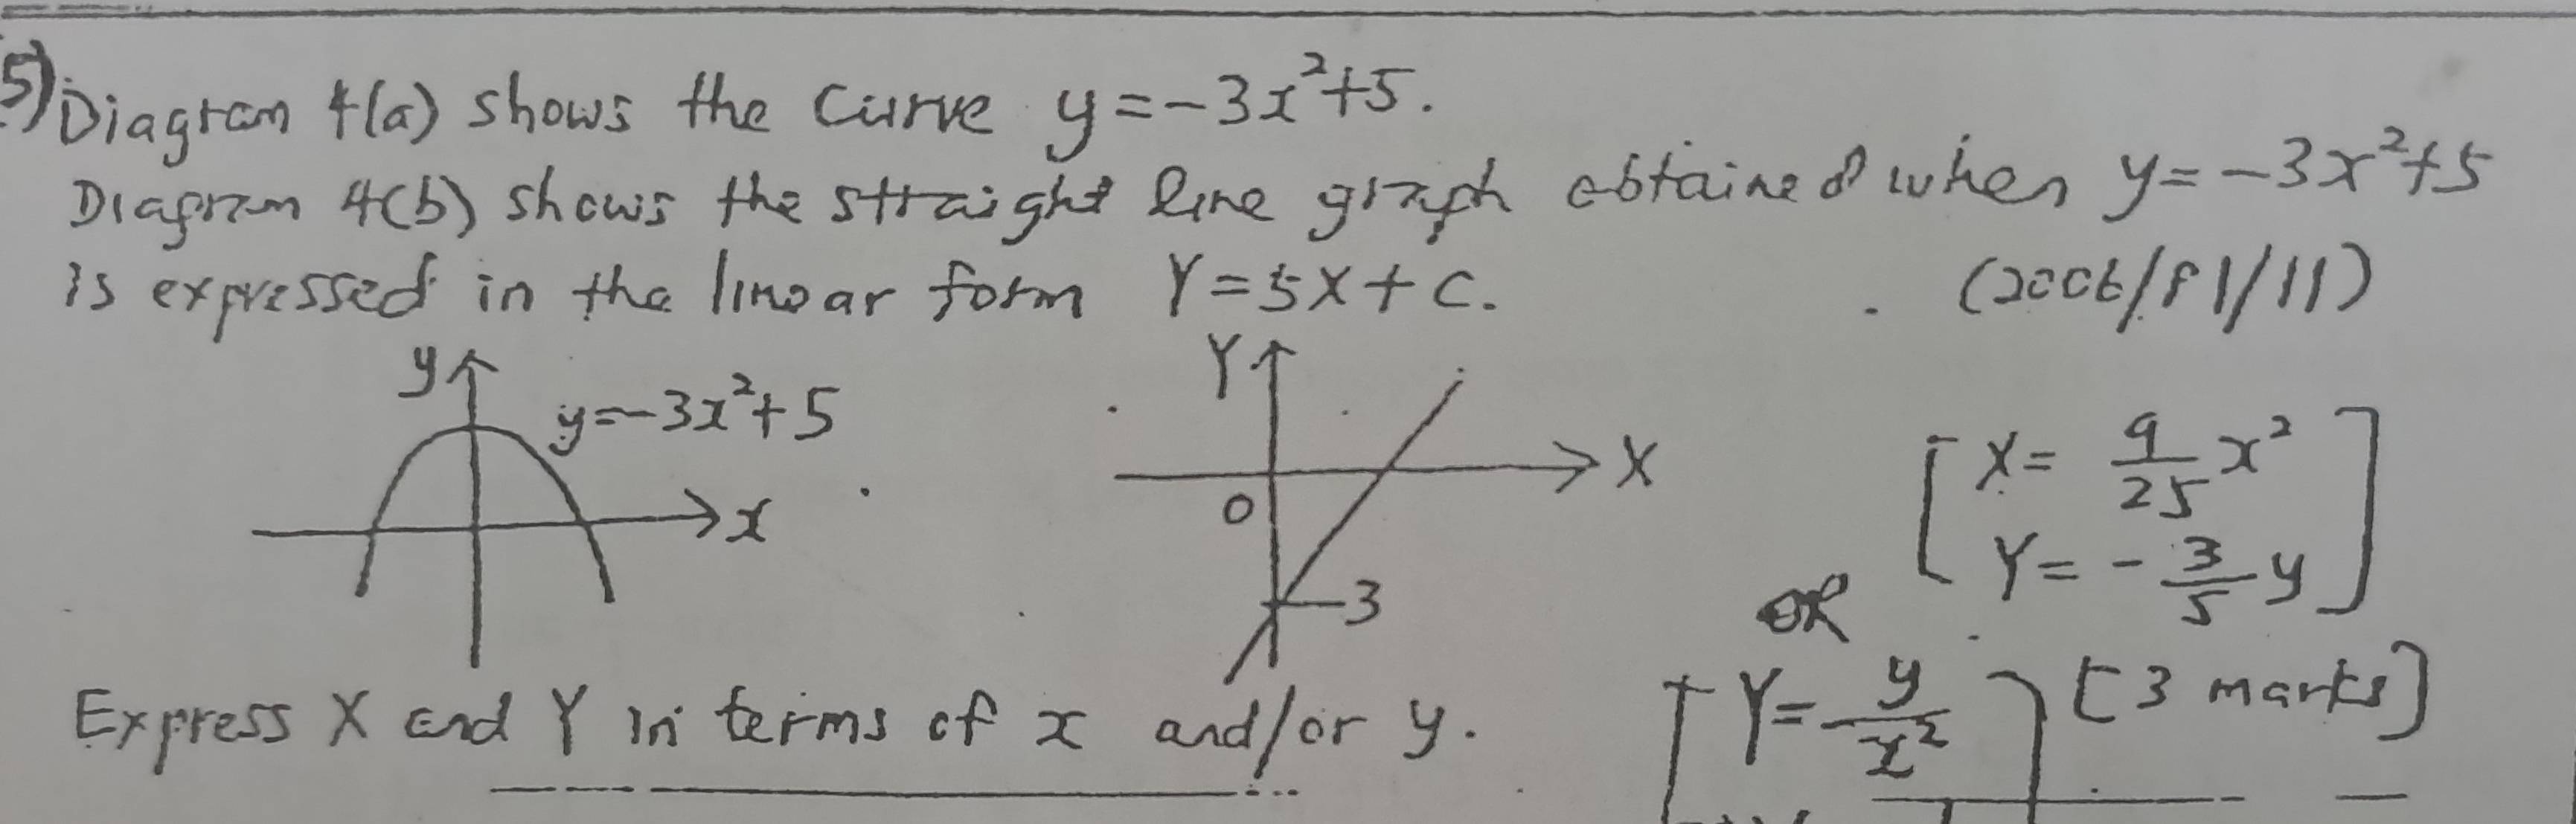 5) Diagram 4(a) shows the curve y=-3x²+5.
Diagram 4(b) shows the straight line graph obtained when y=-3x²+5
is expressed in the linear form Y=5X+C.
(2006/P1/11)
y
y=-3x²+5
x
Y
X
0
-3
[X= 9/25 x²
Y= -3/5 y]
OR
[Y= y/x²]
[3 marks]
Express X and Y in terms of x and/or y.